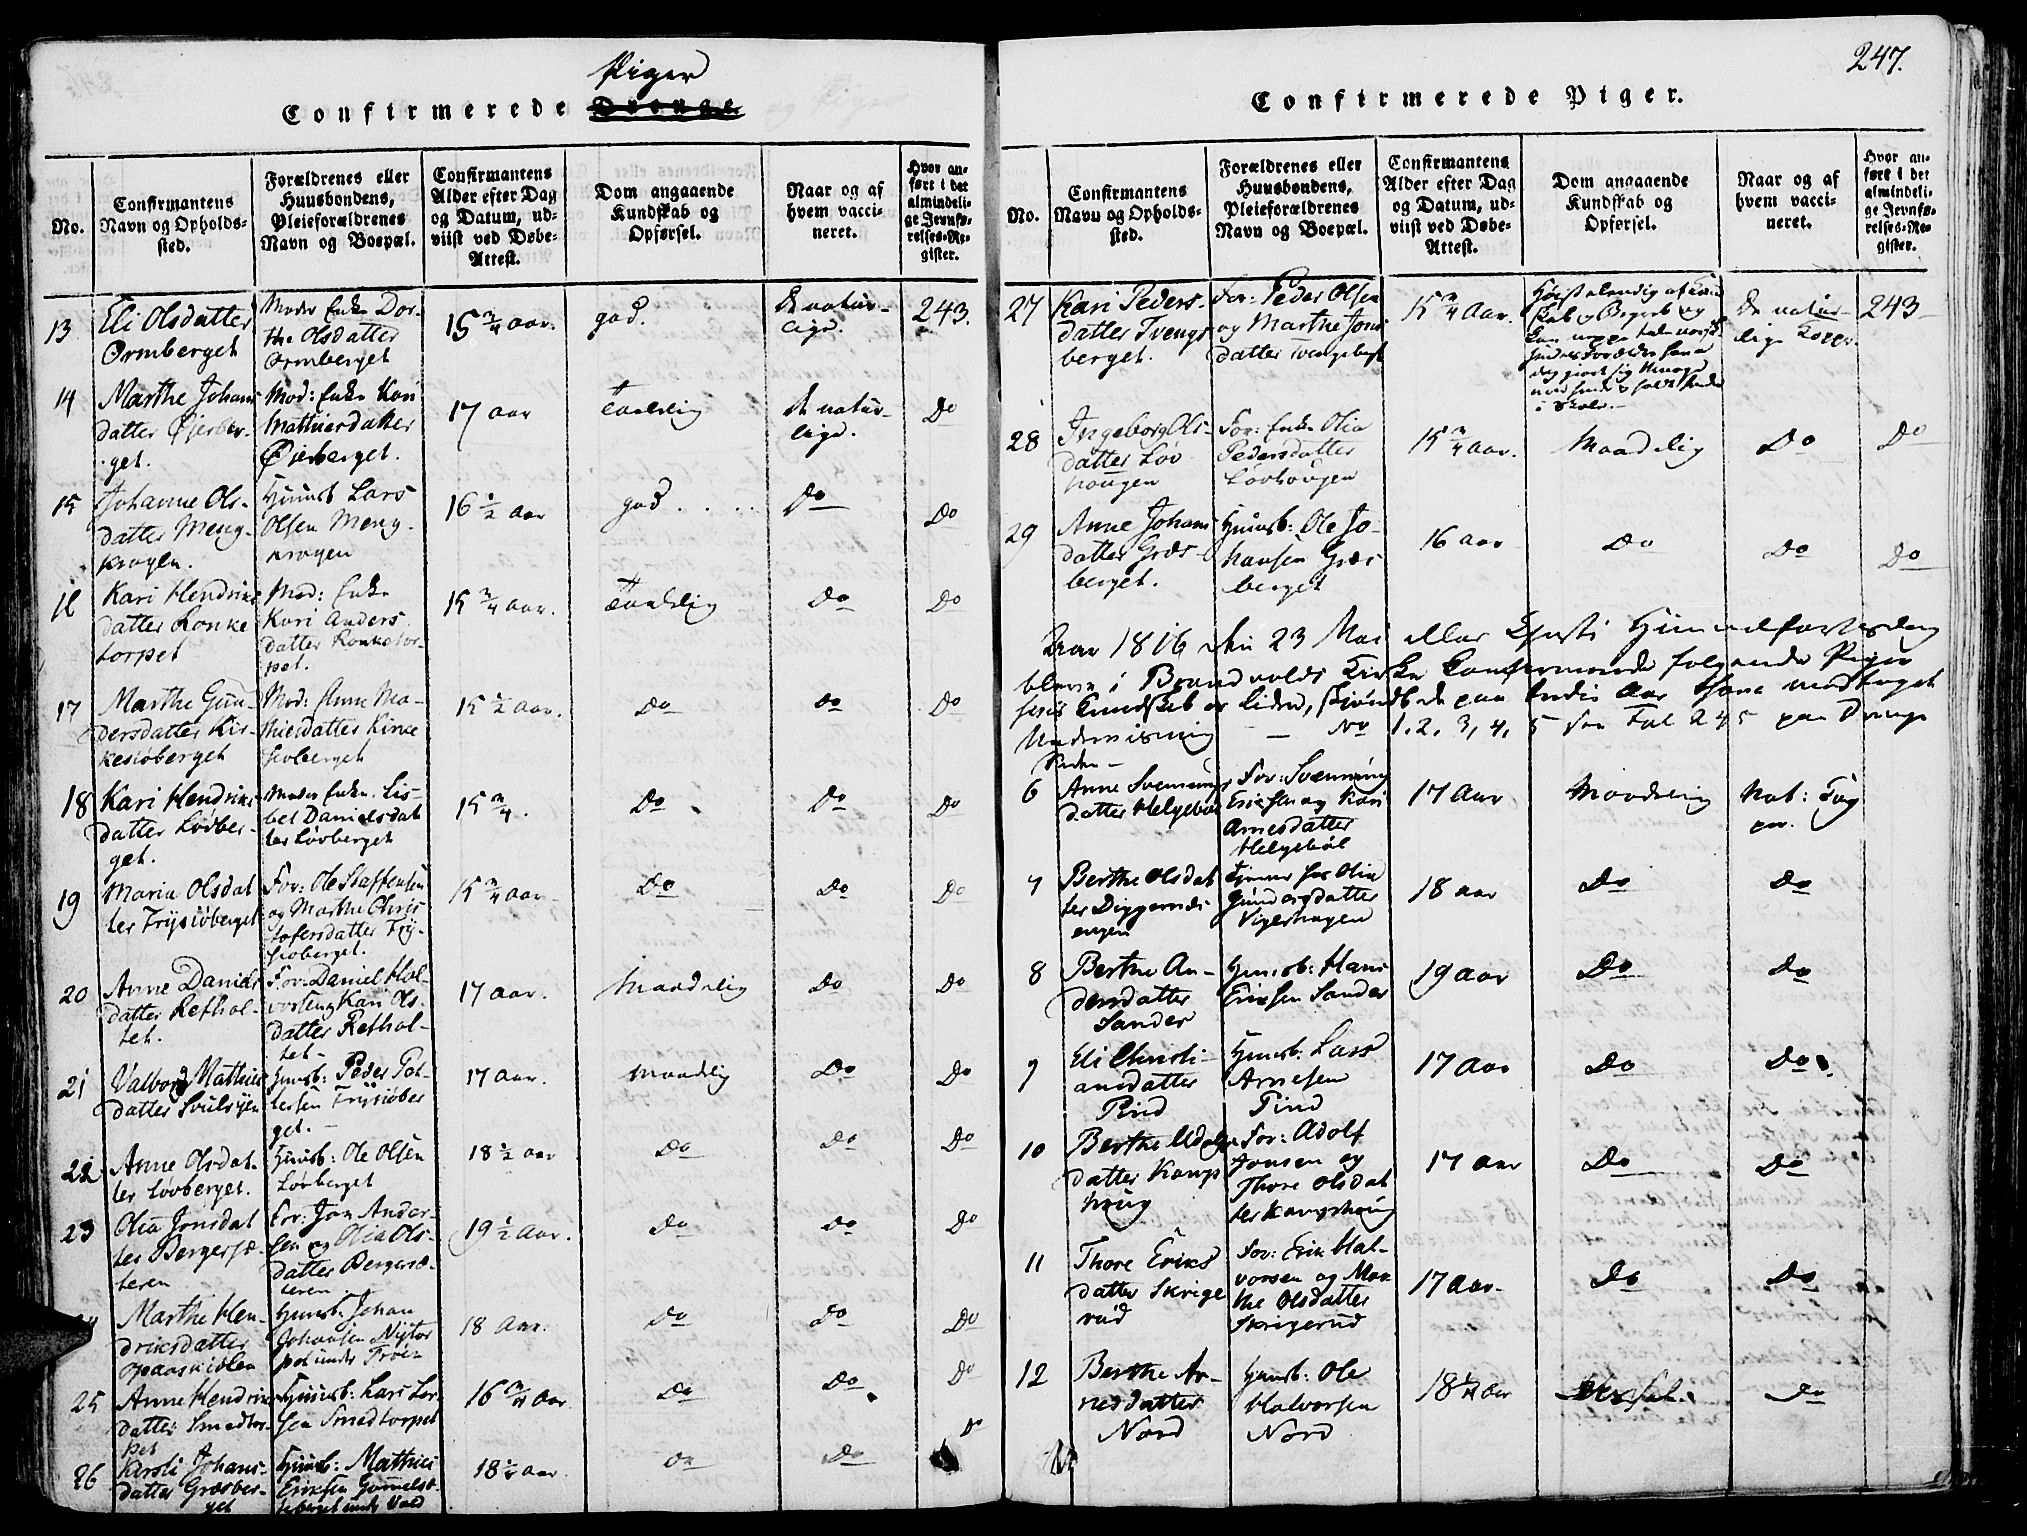 Piger
Confirmerede Drenge
No.
Confirmantens
Navn og Opholds-
sted.
Forældrenes eller
Huusbondens,
Pleieforældrenes
Navn og Boepæl.
Confirmantens
Alder efter Dag
og Datum, ud-
viist ved Døbe-
Attest.
Dom angaaende
Kundskab og
Opførsel.
Naar og af
hvem vacci-
neret.
Hvor an-
ført i det
almindeli-
ge Jevnfø-
relses-Re-
gister.
13
Eli Olsdatter
Ormberget
Moder Enke Dor-
the Olsdatter
Ormberget
15 3/4 aar.
god.
De natur-
lige.
243.
14
Marthe Johans
datter Øierber-
get.
Mod: Enke Kari
Mathiesdatter
Øierberget.
17 aar
Taalelig
de natur-
lige.
Do
15
Johanne Ols-
datter Meng-
krogen.
Huusb Lars
Olsen Meng-
krogen
16 1/2 aar
god
Do
Do
16
Kari Hendriks
datter Ronke
torpet
Mod: Enke
Kari Anders
datter Ronketor-
pet.
15 3/4 aar.
Taalelig
Do
Do
17
Marthe Gun-
dersdatter Kir-
kesiøberget
Mod: Anne Ma-
thiesdatter Kirke
siøberget
15 1/2 aar.
Do
Do
Do
18
Kari Hendriks
datter Løvber-
get.
Moder Enke. Lis-
bet Danielsdat
ter Løvberget
15 3/4.
Do
Do
Do
19
Maria Olsdat
ter Frysiøberget
For: Ole Staffensen
og Marthe Chris
tofersdatter Fry-
siøberget.
15 3/4 aar
Do
Do
Do
20
Anne Daniels
datter Rethol-
tet.
For: Daniel Hal-
vorsen og Kari Ols-
datter Rethol-
tet-
17 aar.
Maadelig
Do
Do
21
Valborg Mathies
datter
Huusb: Peder Pet-
tersen Frysiøber
get.-
17 aar.
maadelig
Do
Do
22
Anne Olsdat-
ter Løvberget.
Huusb: Ole Olsen
Løvberget
18 1/2 aar
Do
Do
Do
23
Olia Jonsdat
ter Bergersæ-
teren
For: Jon Ander-
sen og Olia Ols-
datter Bergersæ-
teren
19 1/2 aar.
Do
Do
Do
Marthe Hen-
driksdatter
Huusb: Johan
Johansen
18 aar.
Do
Do
Do
25
Anne Hendriks
datter Smedtor-
pet
Huusb: Lars Lar-
sen Smedtorpet
16 3/4 aar.
Do
Do
Do
26
Kersti Johans-
datter Græsber-
get
Huusb: Mathies
Eriksen
18 1/2 aar.
Do
Do
Do
247.
Confirmerede Piger.
No.
Confirmantens
Navn og Opholds-
sted.
Forældrenes eller
Huusbondens,
Pleieforældrenes
Navn og Boepæl.
Confirmantens
Alder efter Dag
og Datum, ud-
viist ved Døbe-
Attest.
Dom angaaende
Kundskab og
Opførsel.
Naar og af
hvem vacci-
neret.
Hvor an-
ført i det
almindeli-
ge Jevnfø-
relses-Re-
gister.
27
Kari Peders-
datter Tvengs
berget.
For: Peder Olsen
og Marthe Jons
datter Tvengsberget
15 3/4 Aar.
i Skole.-
De natur-
lige Kopper
243
28
Ingeborg Ols-
datter Lov
hougen
For: Enke Olia
Pedersdatter
Lovhougen
15 3/4 aar.
Maadelig
Do
Do
29
Anne Johans
datter Græs-
berget.
Huusb: Ole Jo-
hansen Græs
berget
16 aar
Do
Do
Do
Aar 1816 den 23 Mai eller Christi Himmelfartsdag
bleve i Brandvolds Kirke Confirmerede følgende Piger
hvis Kundskab er liden, skjøndt de paa andet Aar have modtaget
Underviisning - No 1. 2. 3, 4, 5 see Fol 245 paa Drenge
Siden -
6
Anne Svennungs
datter Helgebøl
For: Svenning
Eriksen og Kari
Arnesdatter
Helgebøl
17 Aar
Maadelig
Nat: Kop
per.
7
Berthe Olsdat
ter Diggernæs
engen
Tjener hos Olia
Gundersdatter
Vigerhagen
18 aar
Do
Do
8
Berthe An-
dersdatter
Sander
Huusb: Hans
Eriksen Sander
19 aar
Do
Do
9
Eli Christi-
ansdatter
Pind
Huusb: Lars
Arnesen
Pind
17 Aar
Do
Do
10
Berthe Adolfs
datter Kongs
houg
For: Adolf
Jonsen og
Thore Olsdat
ter Kongshoug
17 aar
Do
Do
11
Thore Eriks
datter Skrige
rud
For: Erik Hal-
vorsen og Mar
the Olsdatter
Skrigerud
17 Aar.
Do
Do
12
Berthe Ar-
nesdatter
Nord
Huusb: Ole
Halvorsen
Nord
18 1/4 aar
Do